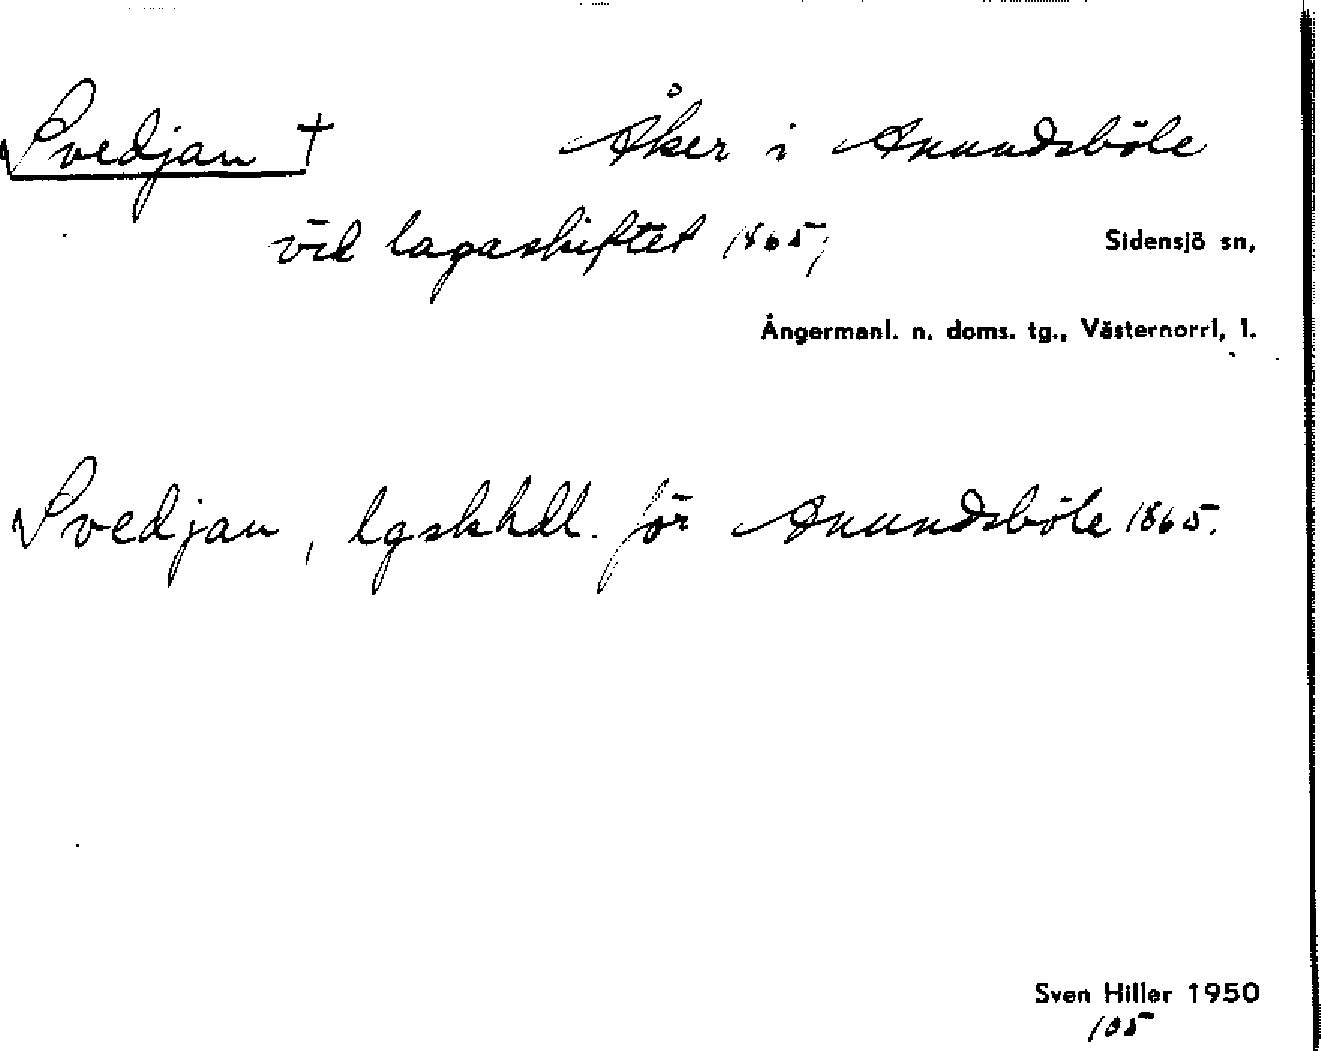 Svedjan † Åker i Anundsböle
vid lagaskiftet 1865,
Sidensjö sn,
Ångermanl. n. doms. tg., Västernorrl, l.
Svedjan, lgskhdl. för Anundsböle 1865.
Sven Hiller 1950
105